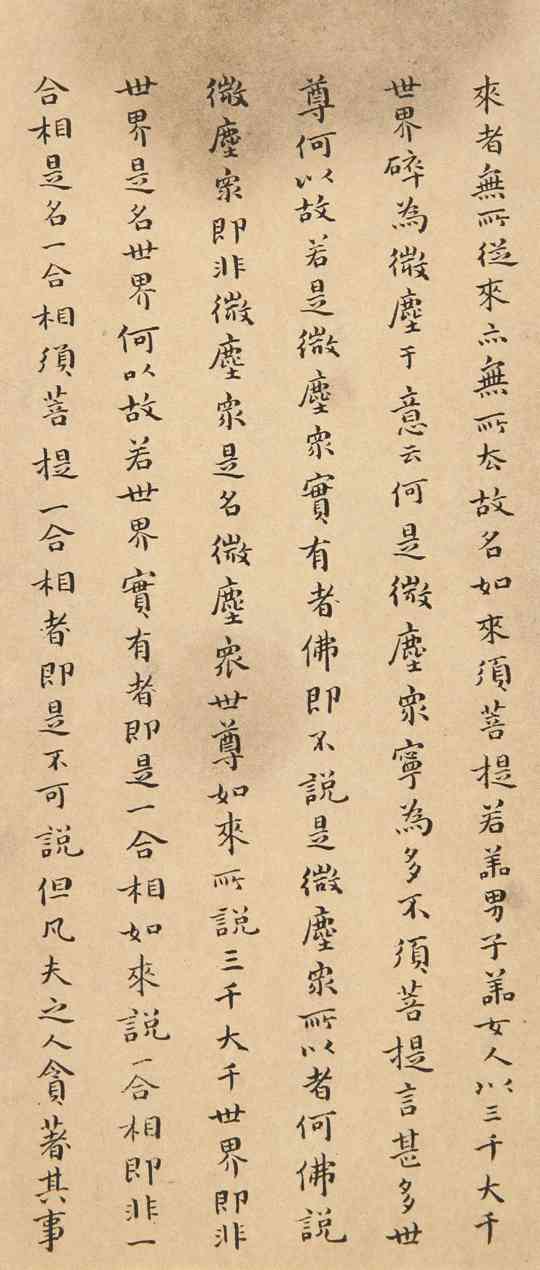 來者無所從來亦無所去故名如來須菩提若善男子善女人以三千大千
世界碎為微塵于意云何是微塵衆寧為多不須菩提言甚多世
尊何以故若是微塵衆實有者佛即不說是微塵衆所以者何佛說
微塵衆即非微塵衆是名微塵衆世尊如來所說三千大千世界即非
世界是名世界何以故若世界實有者即是一合相如來說一合相即非一
合相是名一合相須菩提一合相者即是不可説但凡夫之人貪著其事